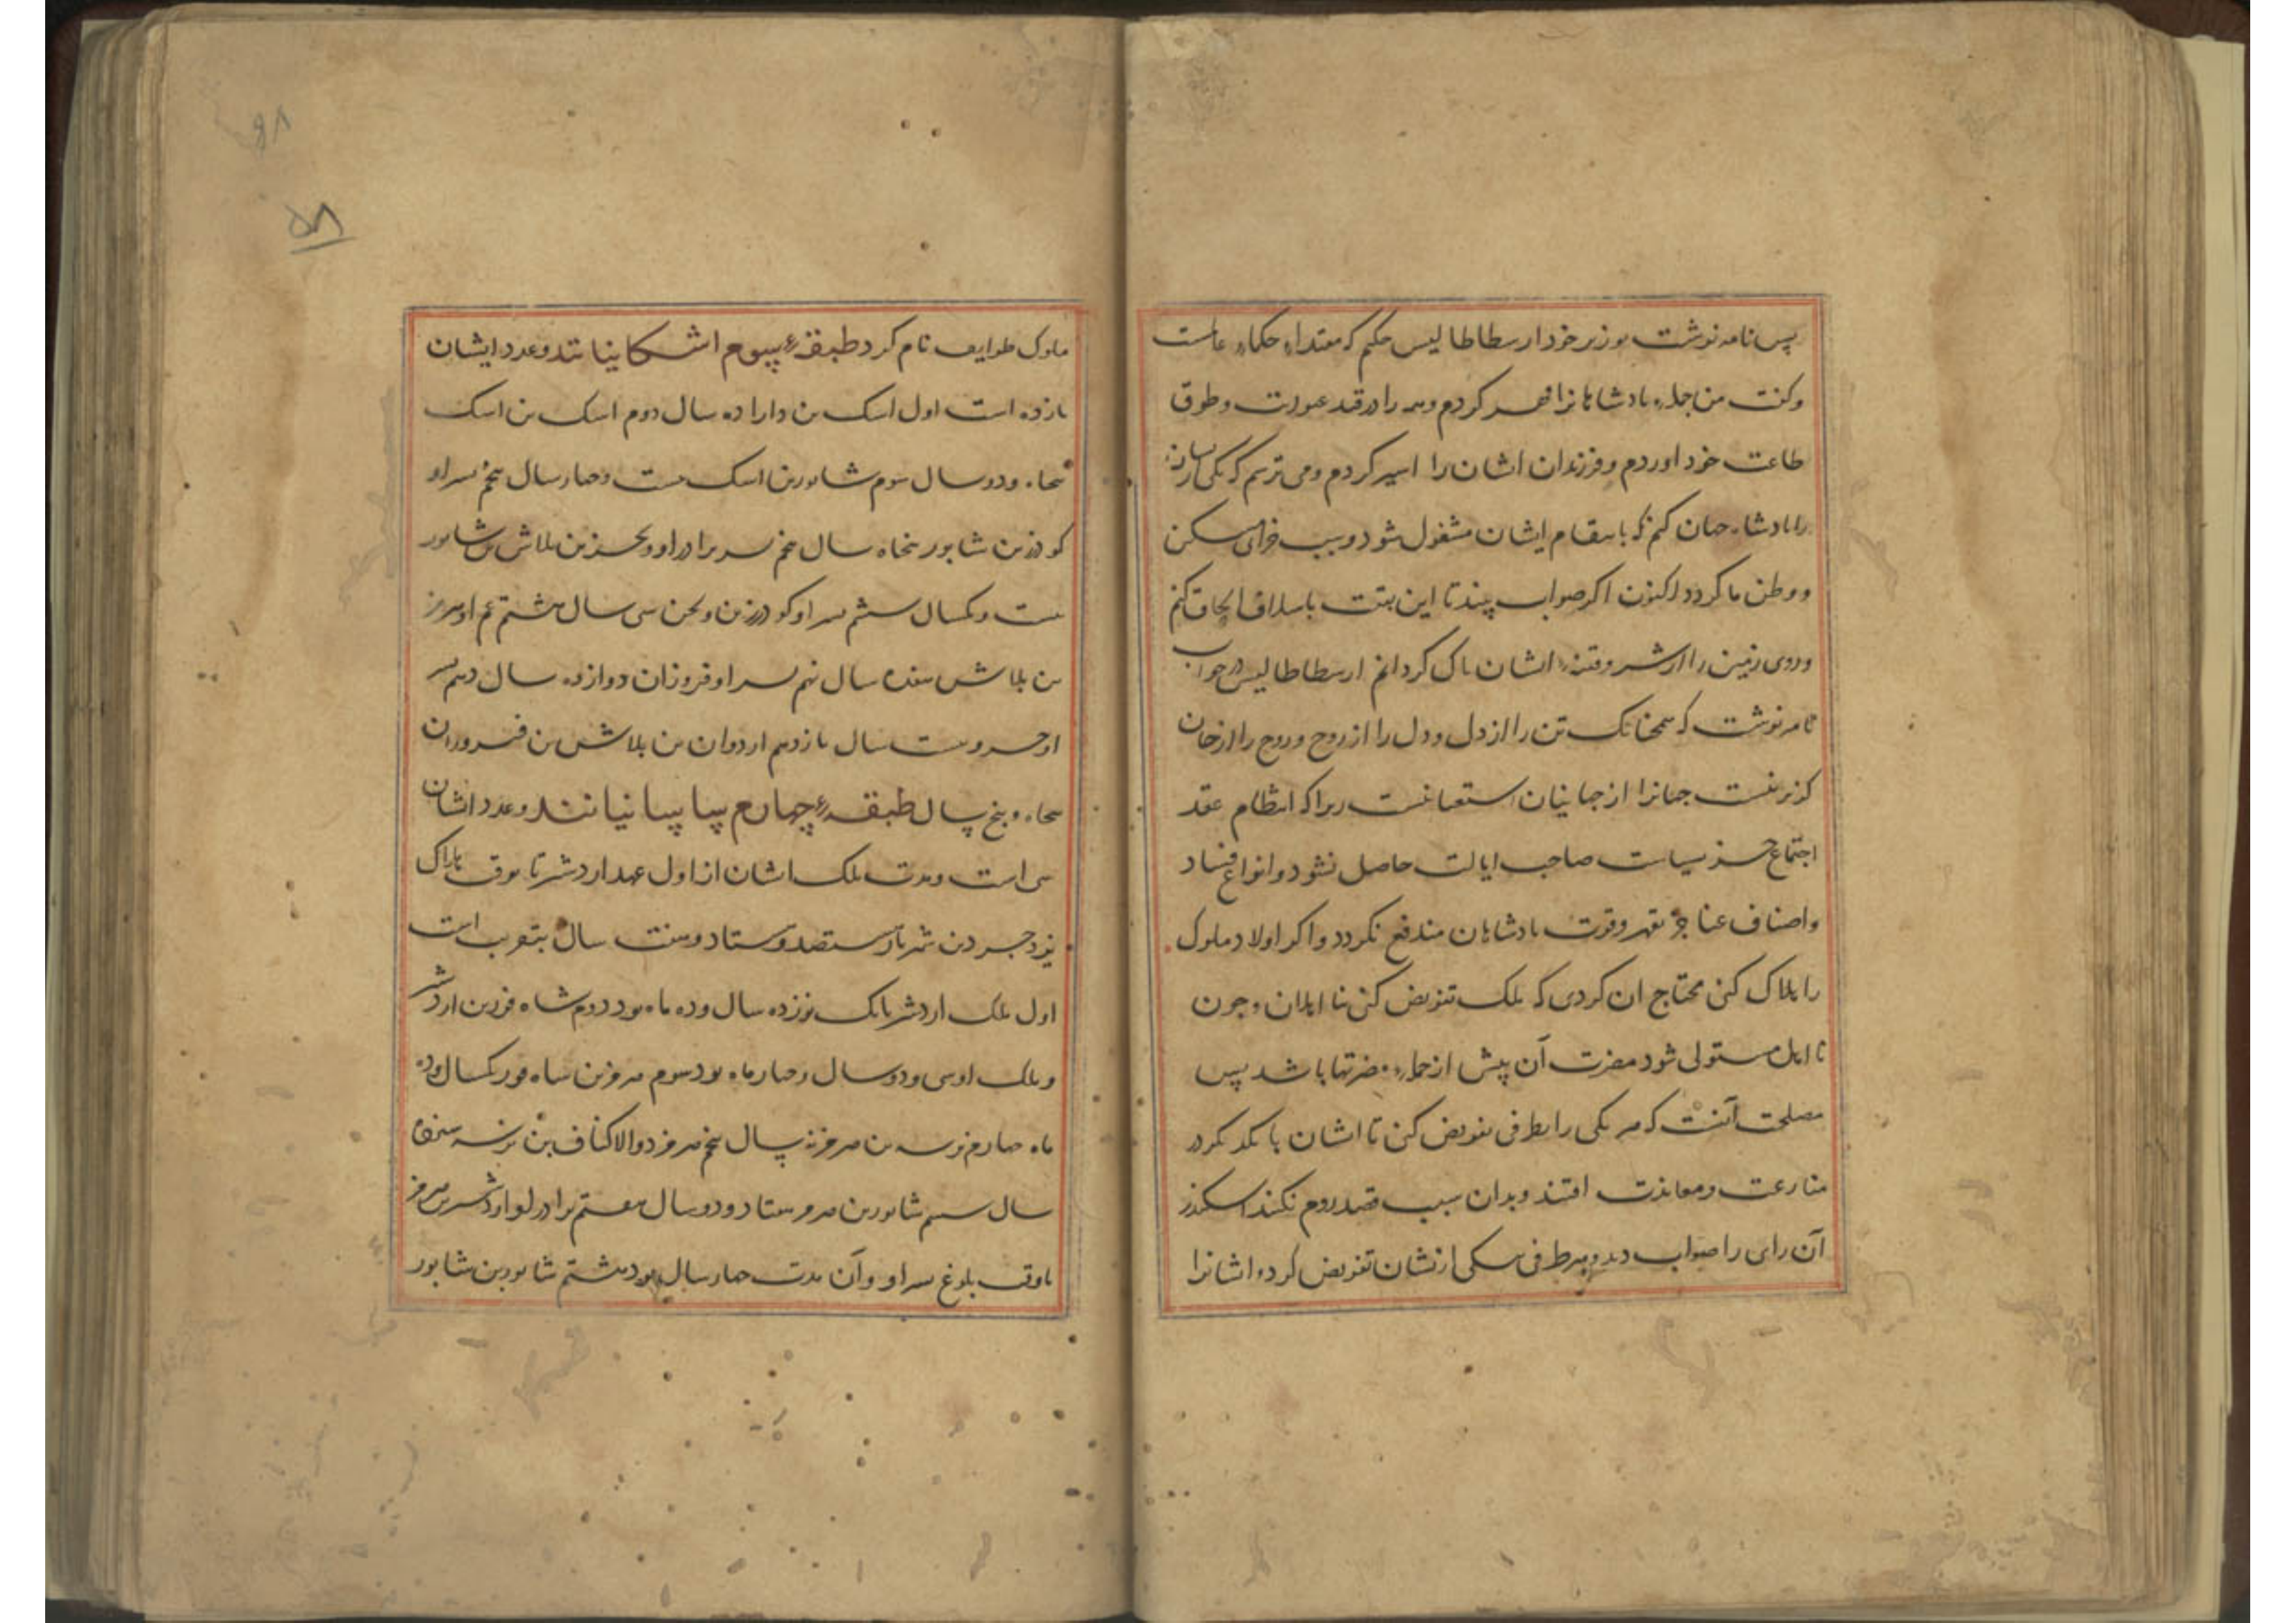 پس نامه نوشت بوزیر خود ارسطاطالیس حکیم که مقتداء حکماء عالمست
و کفت من جمله پادشاهانرا قهر کردم و همه را در قید عبودیت و طوق
طاعت خود اوردم و فرزندان ایشان را اسیر کردم و می ترسم که یکی ازیشان
را پادشاه جهان کنم که بانتقام ایشان مشغول شود و سبب خرابی مسکن
و وطن ما کردد اکنون اکر صواب بیند تا این بقیت باسلاف الحاق کنم
و روی زمین را از شر و فتنه ایشان پاک کردانم ارسطاطالیس در جواب
نامه نوشت که همچنانک تن را از دل و دل را از روح و روح را از خان
کزیر نیست جهانرا از جهانیان استغنا نیست زیرا که انتظام عقد
اجتماع جز بسیاست صاحب ایالت حاصل نشود و انواع فساد
و اصناف عنا جز بقهر و قوت پادشاهان مندفع نکردد و اکر اولاد ملوک
را هلاک کنی محتاج ان کردی که ملک تفویض کنی بنا اهلان و چون
نا اهل مستولی شود مضرت آن پیش از جمله مضرتها باشد پس
مصلحت آنست که هر یکی را بطرفی تفویض کنی تا ایشان با یکدیکر در
منازعت و معاندت افتند و بدان سبب قصد روم نکنند اسکندر
آن رای را صواب دید و هر طرفی بیکی ازیشان تفویض کرد و ایشانرا
ملوک طوایف نام کرد طبقهٔ سوم اشکانیانند و عدد ایشان
یازده است اول اشک بن دارا ده سال دوم اشک بن اشک
پنجاه و دو سال سوم شابور بن اشک بیست و چهار سال پنجم پسر او
کودرز بن شابور پنجاه سال پنجم پسر برادر او ویجن بن بلاش بن شابور
بیست و یکسال ششم پسر او کودرز بن ویجن سی سال هشتم عم او هرمز
بن بلاش هفده سال نهم پسر او فروزان دوازده سال دهم پسر
او خسرو بیست سال یازدهم اردوان بن بلاش بن فیروزان
پنجاه و پنج سال طبقهٔ چهارم ساسانیانند و عدد ایشان
سی است و مدت ملک ایشان از اول عهد اردشیر تا بوقت هلاک
یزدجرد بن شهریار سیصد و هشتاد و هفت سال بتقریب است
اول ملک اردشیر بابک نوزده سال و ده ماه بود دوم شاه فور بن اردشیر
و ملک او سی و دو سال و چهار ماه بود سوم هرمز بن شاه فور یکسال و ده
ماه چهارم نرسه بن هرمز نه سال پنجم هرمز ذوالاکتاف بن نرسه
سال ششم شابور بن هرمز هفتاد و دو سال هفتم برادر او اردشیر بن هرمز
تا وقت بلوغ پسر او و آن مدت چهار سال بود هشتم شابور بن شابور